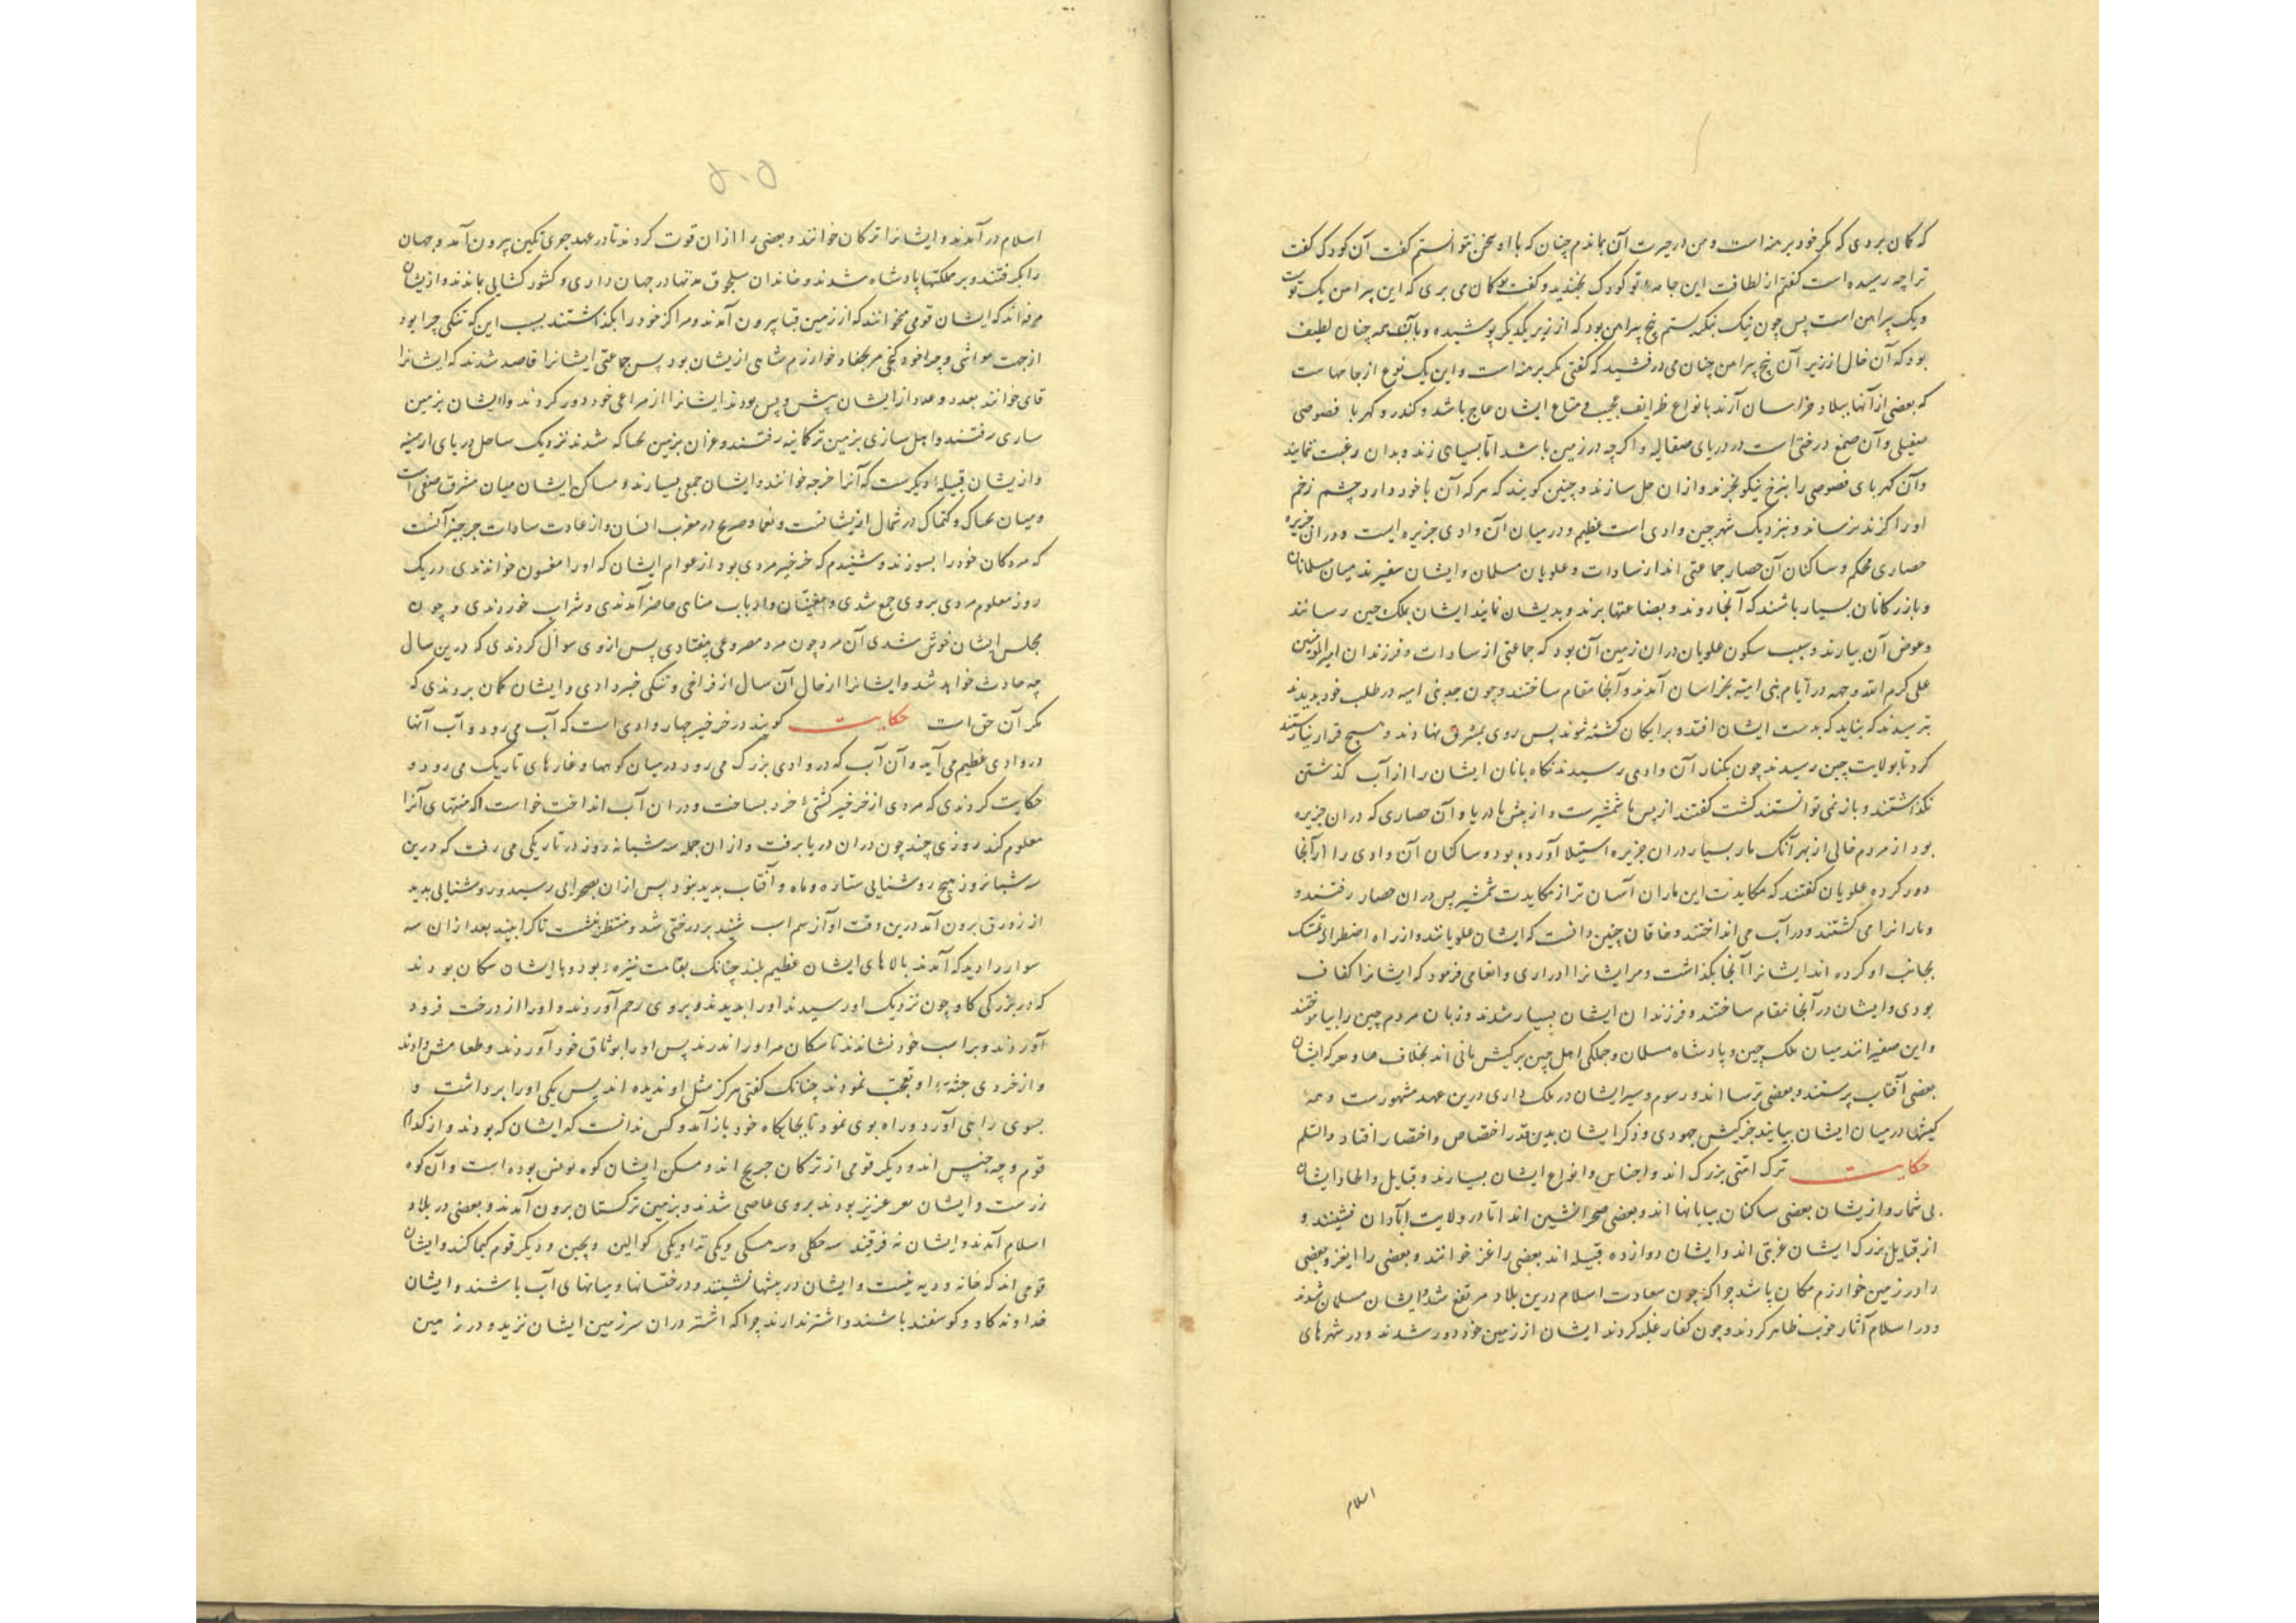 که گمان بردی که مگر خود برهنه است و من از حیرت آن بماندم چنان که با او سخن نتوانستم گفت آن کودک گفت
ترا چه رسیده است گفتم از لطافت این جامه تو کودک بخندید و گفت گمان می بری که این پیراهن یک توست
و یک پیراهن است پس چون نیک بنگریستم پنج پیراهن بود که از زیر یکدیگر پوشیده و با آن همه چنان لطیف
بود که آن خال از زیر آن پنج پیراهن چنان می درفشید که گفتی مگر برهنه است و این یک نوع از جامهاست
که بعضی از آنها ببلاد خراسان آرند با انواع ظرایف عجیب و متاع ایشان عاج باشد و کندر و کهربا فصوصی
صقیلی و آن صمغ درختی است در دریای صقالبه و اگرچه در زمین باشد اما بسیاهی زند و بدان رغبت ننمایند
و آن کهربای فصوصی را بنرخ نیکو بخرند و ازان حلی سازند و چنین گویند که هر که آن با خود دارد چشم زخم
او را گزند نرساند و بنزدیک شهر چین وادی است عظیم و در میان آن وادی جزیره ایست و دران جزیره
حصاری محکم و ساکنان آن حصار جماعتی اند از سادات و علویان مسلمان و ایشان سفیرند میان مسلمانان
و بازرگانان بسیار باشند که آنجا روند و بضاعتها برند و بدیشان نمایند ایشان بملک چین رسانند
و عوض آن بیارند و سبب سکون علویان دران زمین آن بود که جماعتی از سادات و فرزندان امیرالمومنین
علی کرم الله وجهه در ایام بنی امیه بخراسان آمدند و آنجا مقام ساختند و چون جد بنی امیه در طلب خود بدیدند
بترسیدند که بناید که بدست ایشان افتند و برایگان کشته شوند پس روی بمشرق نهادند و هیچ قرار نیارستند
کرد تا بولایت چین رسیدند چون بکنار آن وادی رسیدند نگاه بانان ایشان را از آب گذشتن
نگذاشتند و باز نمی توانستند گشت گفتند از پس ما شمشیرست و از پیش ما دریا و آن حصاری که دران جزیره
بود از مردم خالی از بهر آنک مار بسیار دران جزیره استیلا آورده بود و ساکنان آن وادی را از آنجا
دور کرده علویان گفتند که مکایدت این ماران آسان تر از مکایدت شمشیر پس دران حصار رفتند و
مارانرا می کشتند و در آب می انداختند و خاقان چین دانست که ایشان علویانند و از راه اضطرار تمسک
بجانب او کرده اند ایشانرا آنجا بگذاشت و مر ایشانرا ادراری و انعامی فرمود که ایشانرا کفاف
بودی و ایشان در آنجا مقام ساختند و فرزندان ایشان بسیار شدند و زبان مردم چین را بیاموختند
و این سفیرانند میان ملک چین و پادشاه مسلمان و جملگی اهل چین بر کیش مانی اند بخلاف که ایشان
بعضی آفتاب پرستند و بعضی ترسا اند و رسوم و سیر ایشان در ملک داری درین عهد مشهورست و همه
کیشها در میان ایشان بیایند جز کیش جهودی و ذکر ایشان بدین قدر اختصاص و اختصار افتاد والسلم
حکایت ترک امتی بزرگ اند و اجناس و انواع ایشان بسیارند و قبایل و ایشان
بی شمار و ازیشان بعضی ساکنان بیابانها اند و بعضی صحرانشین اند اما در ولایت آبادان نشینند و
از قبایل بزرگ ایشان غزنی اند و ایشان دوازده قبیله اند بعضی را غز خوانند و بعضی را ایغر و بعضی
را در زمین خوارزم مکان باشد چرا که چون سعادت اسلام درین بلاد مرتفع شد و ایشان مسلمان شدند
و در اسلام آثار خوب ظاهر کردند و چون کفار غلبه کردند ایشان از زمین خود دور شدند و در شهرهای
اسلام
اسلام در آمدند و ایشانرا ترکان خوانند و بعضی را ازان قوت کردند تا در عهد جعری تکین بیرون آمد و جهان
را بگرفتند و بر مملکتها پادشاه شدند و خاندان سلجوق مدتها در جهان داری و کشور گشایی بماندند و ازیشان
مرقه اند که ایشان قومی خوانند که از زمین قتا بیرون آمدند و مراکز خود را بگذاشتند بسبب این که تنگی چرا بود
از جهت مواشی و چراخور خوارزم شاهی ازیشان بود پس جماعتی ایشانرا قاصد شدند که ایشانرا
قای خوانند بعدد و عدد از ایشان بیش و پس بودند ایشانرا از مراعی خود دور کردند و ایشان بزمین
ساری رفتند و اهل ساری بزمین ترکانیه رفتند و غزان بزمین بجاکه شدند نزدیک ساحل دریای ارمنیه
و ازیشان قبیله دیگرست که آنرا خرجه خوانند و ایشان جمعی بسیارند و مساکن ایشان میان مشرق صیفی است
و میان بجاک و کیماک در شمال ازیشانست و در مغرب انسان و از عادت سادات خرخیز آنست
که مردگان خود را بسوزند و شنیدم که خرخیز مردی بود از عوام ایشان که او را مغسون خواندندی در یک
روز معلوم مردی بروی جمع شدی و مغنیان و ارباب مناهی حاضر آمدندی و شراب خوردندی و چون
مجلس ایشان خوش شدی آن مرد چون مرد مصروعی بیفتادی پس ازوی سوال کردندی که درین سال
چه حادث خواهد شد و ایشانرا از حال آن سال از فراخی و تنگی خبر دادی و ایشان گمان بردندی که
مگر آن حق است حکایت گویند در خرخیز چهار وادی است که آب می رود و آب آنها
در وادی عظیم می آید و آن آب که در وادی بزرگ می رود در میان کوهها و غارهای تاریک می رود و
حکایت کردندی که مردی از خرخیز کشتی خرد بساخت و دران آب انداخت خواست که منتهای آنرا
معلوم کند روزی چند چون دران دریا برفت و ازان جمله سه شبانه روز در تاریکی می رفت که درین
سه شبانروز هیچ روشنایی ستاره و ماه و آفتاب پدید نبود پس ازان بصحرای رسید و روشنایی بدید
از زورق برون آمد درین وقت آواز سم اسب شنید بر درختی شد و منتظر بنشست تا کرا بیند بعد ازان سه
سوار را دید که آمدند بالاهای ایشان عظیم بلند چنانک بقامت نیزه بود و با ایشان سگان بودند
که در بزرگی گاو چون نزدیک او رسیدند او را بدیدند و بروی رحم آوردند و او را از درخت فرود
آوردند و بر اسب خود نشاندند تا سگان مر او را اندرند پس او را بوثاق خود آوردند و طعامش دادند
و از خردی جثه او تعجب نمودند چنانک گفتی هرگز مثل او ندیده اند پس یکی او را برداشت و
بسوی راهی آورد و راه بوی نمود تا بجایگاه خود باز آمد و کس ندانست که ایشان که بودند و از کدام
قوم و چه جنس اند و دیگر قومی از ترکان جریج اند و مسکن ایشان کوه تونس بوده است و آن کوه
زرست و ایشان عزیز بودند بروی عاصی شدند و بزمین ترکستان برون آمدند و بعضی در بلاد
اسلام آمدند و ایشان نه فرقند سه جکلی و سه مسکی و یکی نداو یکی کوالین و بجین و دیگر قوم کیماکند و ایشان
قومی اند که خانه و دیه نیست و ایشان در بیشها نشینند و درختستانها و میانهای آب باشند و ایشان
خداوند گاو و گوسفند باشند و اشتر ندارند چرا که اشتر دران سرزمین ایشان نزید و در زمین